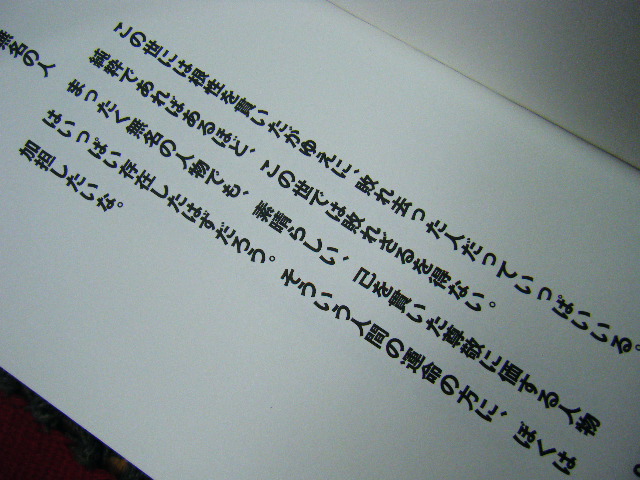 この世には根性を貫いたがゆえに、敗れ去った人だっていっぱいいる。
純粋であればあるほど、この世では敗れざるを得ない。
まったく無名の人物でも、素晴らしい、己を貫いた尊敬に価する人物
はいっぱい存在したはずだろう。そういう人間の運命の方に、ぼくは
加担したいな。
無名の人